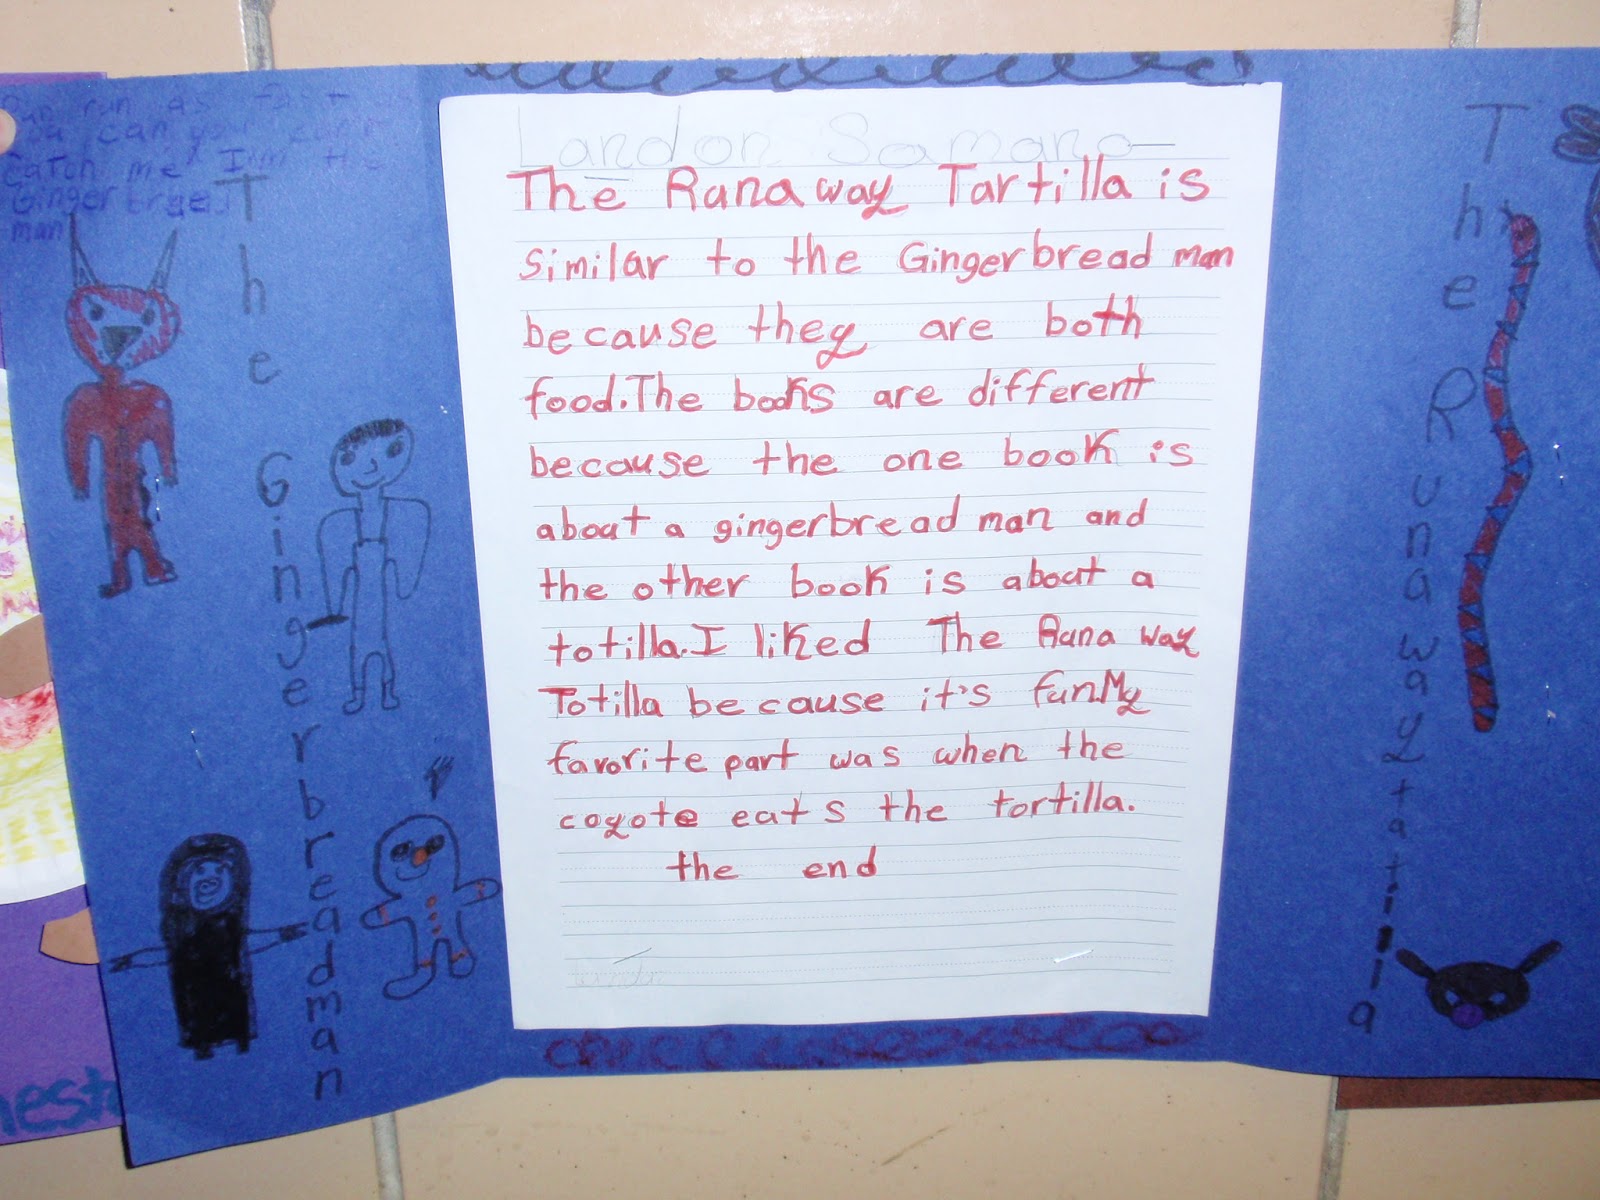 Run run as fast
you can you can't
catch me I'm the
Ginger bread
man
The
Gingerbreadman
Landon Samano
The Runaway Tartilla is
similar to the Gingerbread man
because they are both
food. The books are different
because the one book is
about a gingerbread man and
the other book is about a
totilla. I liked The Runa way
Totilla because it's fun. My
favorite part was when the
coyote eats the tortilla.
the end
Landon
The Runaway tatilla